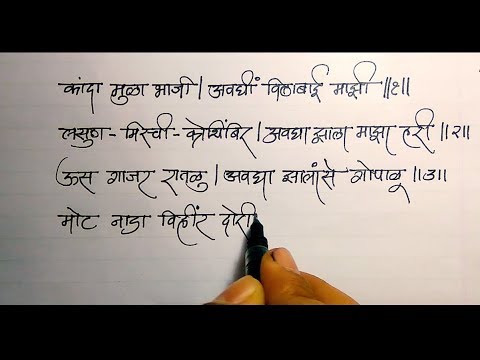 कांदा मुळा भाजी | अवघीं विठाबाई माझी ||१||
लसुण - मिरची - कोथिंबिर | अवघा झाला माझा हरी ||२||
ऊस गाजर रातळु | अवघा झालासे गोपाळू ||३||
मोट नाडा विहींर दोरी